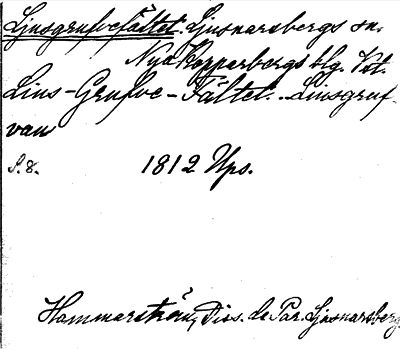 Ljusgrufvefältet. Ljusnarsbergs sn.
Nya Kopparbergs blg. Vstl.
Lius-Grufve-Fältet. Liusgruf-
van
S. 8. 1812 Ups.
Hammarström, Diss. de Par. Ljusnarsberg